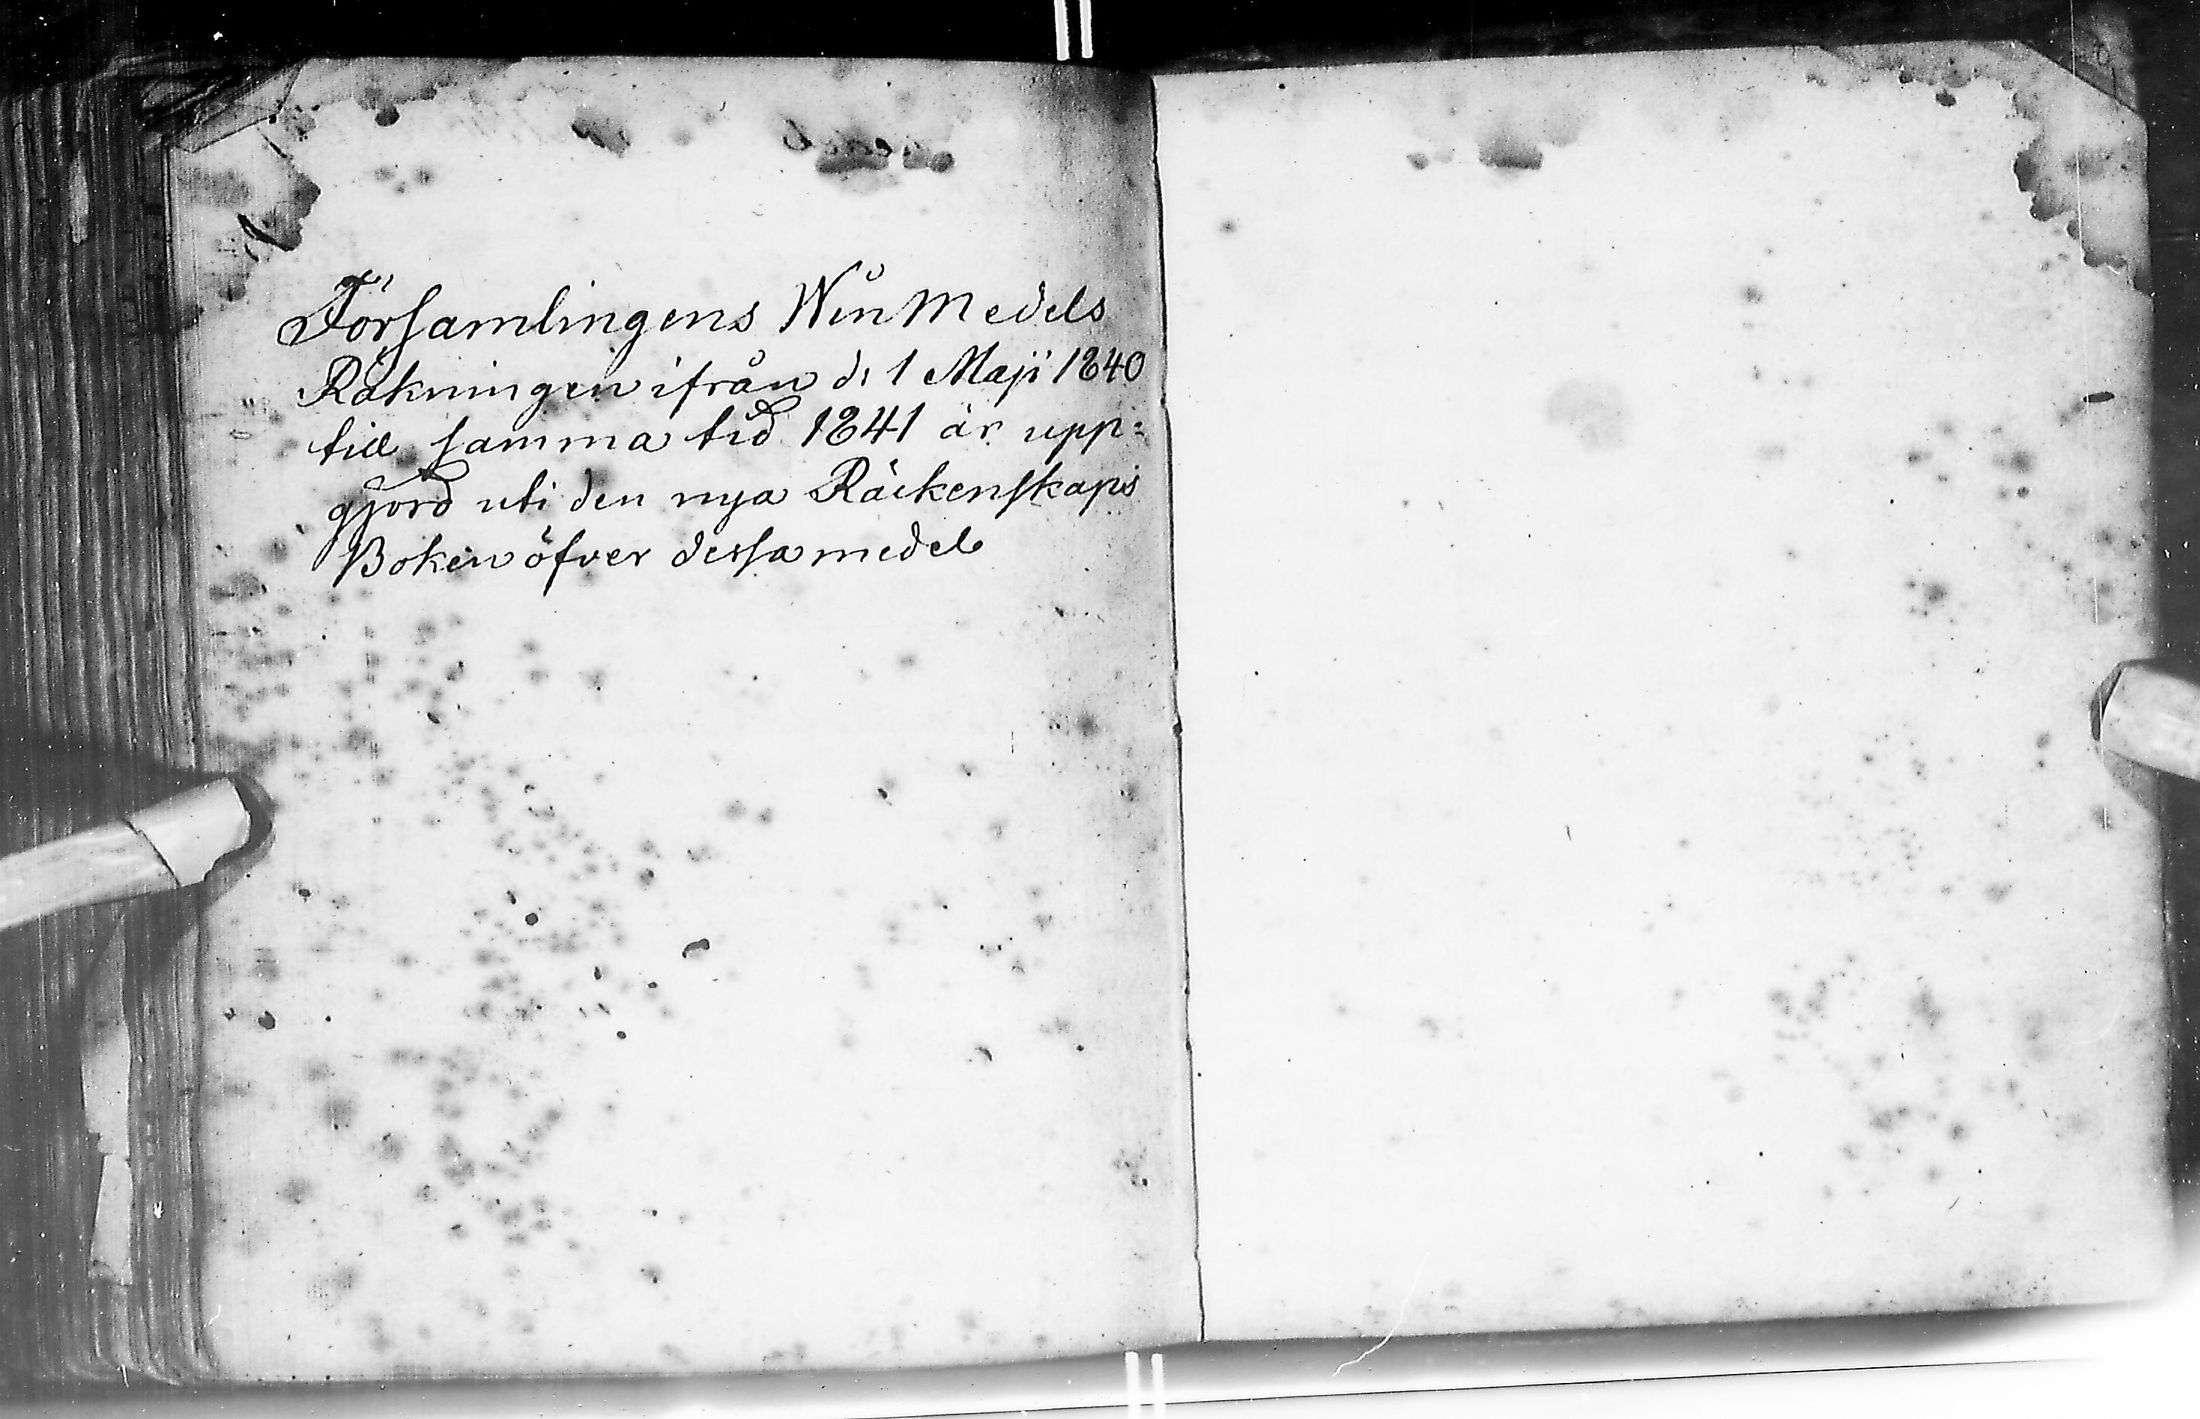 Församlingens Win Medels
Räkningen ifrån d: 1 Maji 1840
till samma tid 1841 är upp=
gjord uti den nya Räckenskaps
Boken öfver dessa medel